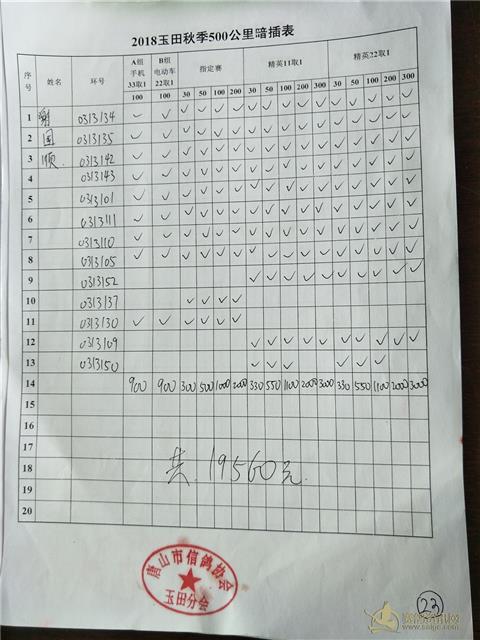 2018玉田秋季500公里暗插表
序号 姓名 环号 A组手机33取1 B组电动车22取1 指定赛 精英11取1 精英22取1
100 100 30 50 100 200 30 50 100 200 300 30 50 100 200 300
1 谢 0313134 ✓ ✓ ✓ ✓ ✓ ✓ ✓ ✓ ✓ ✓ ✓ ✓ ✓ ✓ ✓ ✓
2 国 0313135 ✓ ✓ ✓ ✓ ✓ ✓ ✓ ✓ ✓ ✓ ✓ ✓ ✓ ✓ ✓ ✓
3 顺 0313142 ✓ ✓ ✓ ✓ ✓ ✓ ✓ ✓ ✓ ✓ ✓ ✓ ✓ ✓ ✓ ✓
4 0313143 ✓ ✓ ✓ ✓ ✓ ✓ ✓ ✓ ✓ ✓ ✓ ✓ ✓ ✓ ✓ ✓
5 0313101 ✓ ✓ ✓ ✓ ✓ ✓ ✓ ✓ ✓ ✓ ✓ ✓ ✓ ✓ ✓ ✓
6 0313111 ✓ ✓ ✓ ✓ ✓ ✓ ✓ ✓ ✓ ✓ ✓ ✓ ✓ ✓ ✓ ✓
7 0313110 ✓ ✓ ✓ ✓ ✓ ✓ ✓ ✓ ✓ ✓ ✓ ✓ ✓ ✓ ✓ ✓
8 0313105 ✓ ✓ ✓ ✓ ✓ ✓ ✓ ✓ ✓ ✓ ✓ ✓ ✓ ✓ ✓ ✓
9 0313152 ✓ ✓ ✓ ✓ ✓ ✓ ✓ ✓ ✓ ✓
10 0313137 ✓ ✓ ✓ ✓
11 0313130 ✓ ✓ ✓ ✓ ✓ ✓
12 0313109 ✓ ✓ ✓ ✓ ✓ ✓ ✓ ✓ ✓ ✓
13 0313150 ✓ ✓ ✓ ✓ ✓ ✓
14 900 900 300 500 1000 2000 330 550 1100 2000 3000 330 550 1100 2000 3000
15
16
17
18 共.19560元.
19
20
唐山市信鸽协会
玉田分会
23